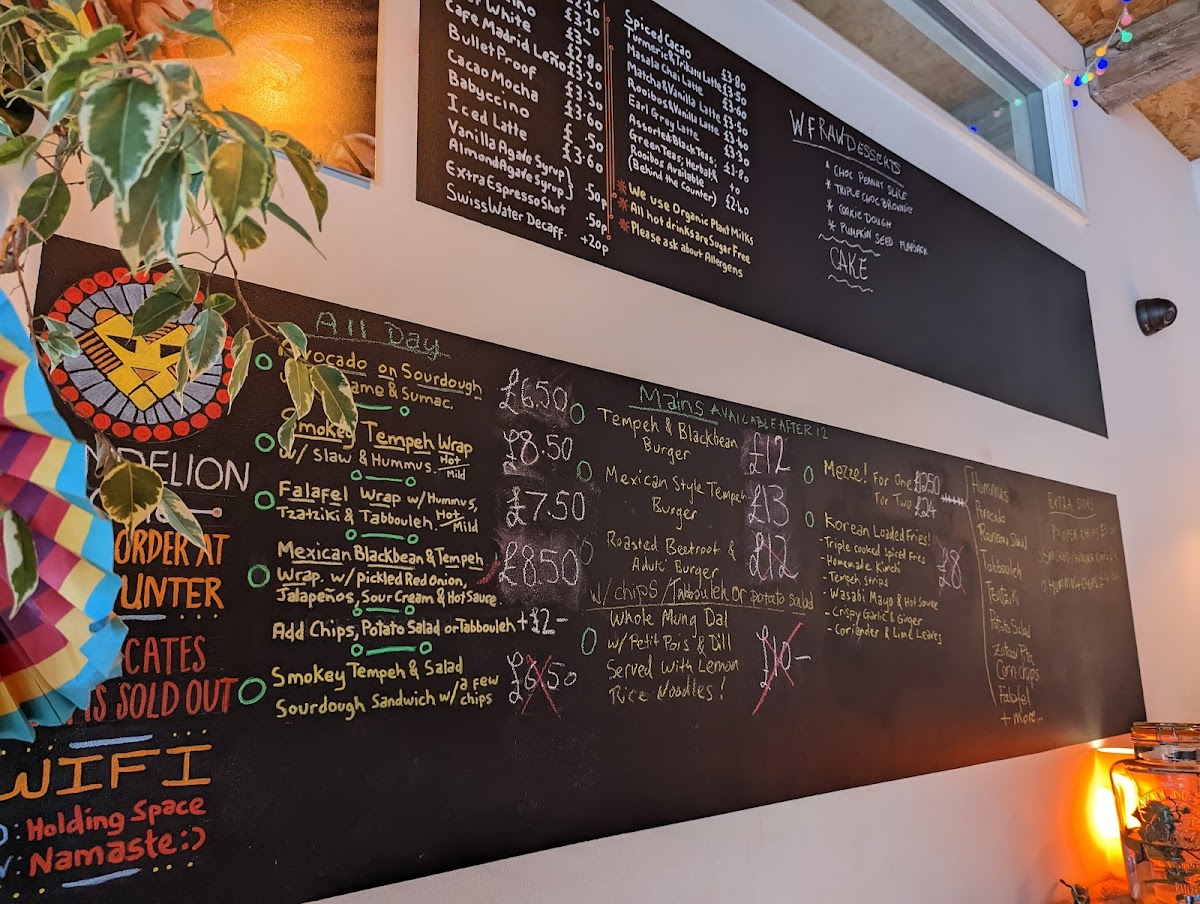 £2.10
White £3.10
Cafe Madrid Leño £2.80
BulletProof £3.20
Cacao Mocha £3.30
Babyccino £3.60
Iced Latte £ .50
Vanilla Agave Syrup £3.60
Almond Agave Syrup } .50p
Extra Espresso Shot .50p
Swiss Water Decaff. +20p
Spiced Cacao £3.80
Turmeric & Trikatu Latte £3.50
Masala Chai Latte £3.60
Matcha & Vanilla Latte £3.50
Rooibos & Vanilla Latte £3.40
Earl Grey Latte £3.30
Assorted Black Teas; £1.80
Green Teas; Herbal &
Rooibos Available to
(Behind the Counter) £2.40
* We use Organic Plant Milks
* All hot drinks are Sugar Free
* Please ask about Allergens
WFRAWDESSERTS
* CHOC PEANUT SLICE
* TRIPLE CHOC BROWNIE
* COOKIE DOUGH
* PUMPKIN SEED FLAPJACK
CAKE
NDELION
ORDER AT
UNTER
CATES
IS SOLD OUT
WIFI
: Holding Space
: Namaste :)
All Day
Avocado on Sourdough £6.50
& Sumac.
Smokey Tempeh Wrap £8.50
w/ Slaw & Hummus. Hot/Mild
Falafel Wrap w/ Hummus, £7.50
Tzatziki & Tabbouleh. Hot/Mild
Mexican Blackbean & Tempeh £850
Wrap. w/ pickled Red Onion,
Jalapeños, Sour Cream & Hot Sauce.
Add Chips, Potato Salad or Tabbouleh +£2-
Smokey Tempeh & Salad £6.50
Sourdough Sandwich w/ a few chips
Mains AVAILABLE AFTER 12
Tempeh & Blackbean £12
Burger
Mexican Style Tempeh £13
Burger
Roasted Beetroot & £12
Aduki Burger
w/ chips / Tabbouleh or potato salad
Whole Mung Dal £10-
w/ Petit Pois & Dill
Served with Lemon
Rice Noodles!
Mezze! For One
For Two £24
Korean Loaded Fries! £8
- Triple cooked spiced Fries
- Homemade Kimchi
- Tempeh strips
- Wasabi Mayo & Hot Sauce
- Crispy Garlic & Ginger
- Coriander & Lime Leaves
Hummus
Avocado
Tabbouleh
Tzatziki
Potato Salad
Zaatar Pita
Corn chips
Falafel
+ more...
EXTRA